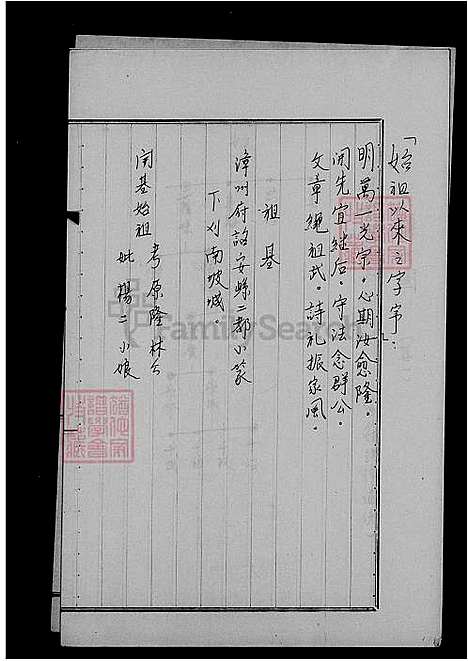 「始祖以來之字字」：
明萬一光宗。心期汝愈隆。
開先宜継后。守法念群公。
文章繩祖武。詩礼振家風。
祖基
漳州府詔安縣二都小篆
下刈南坡城。
開基始祖 考原隆林公
妣楊二小娘
FamilySearch